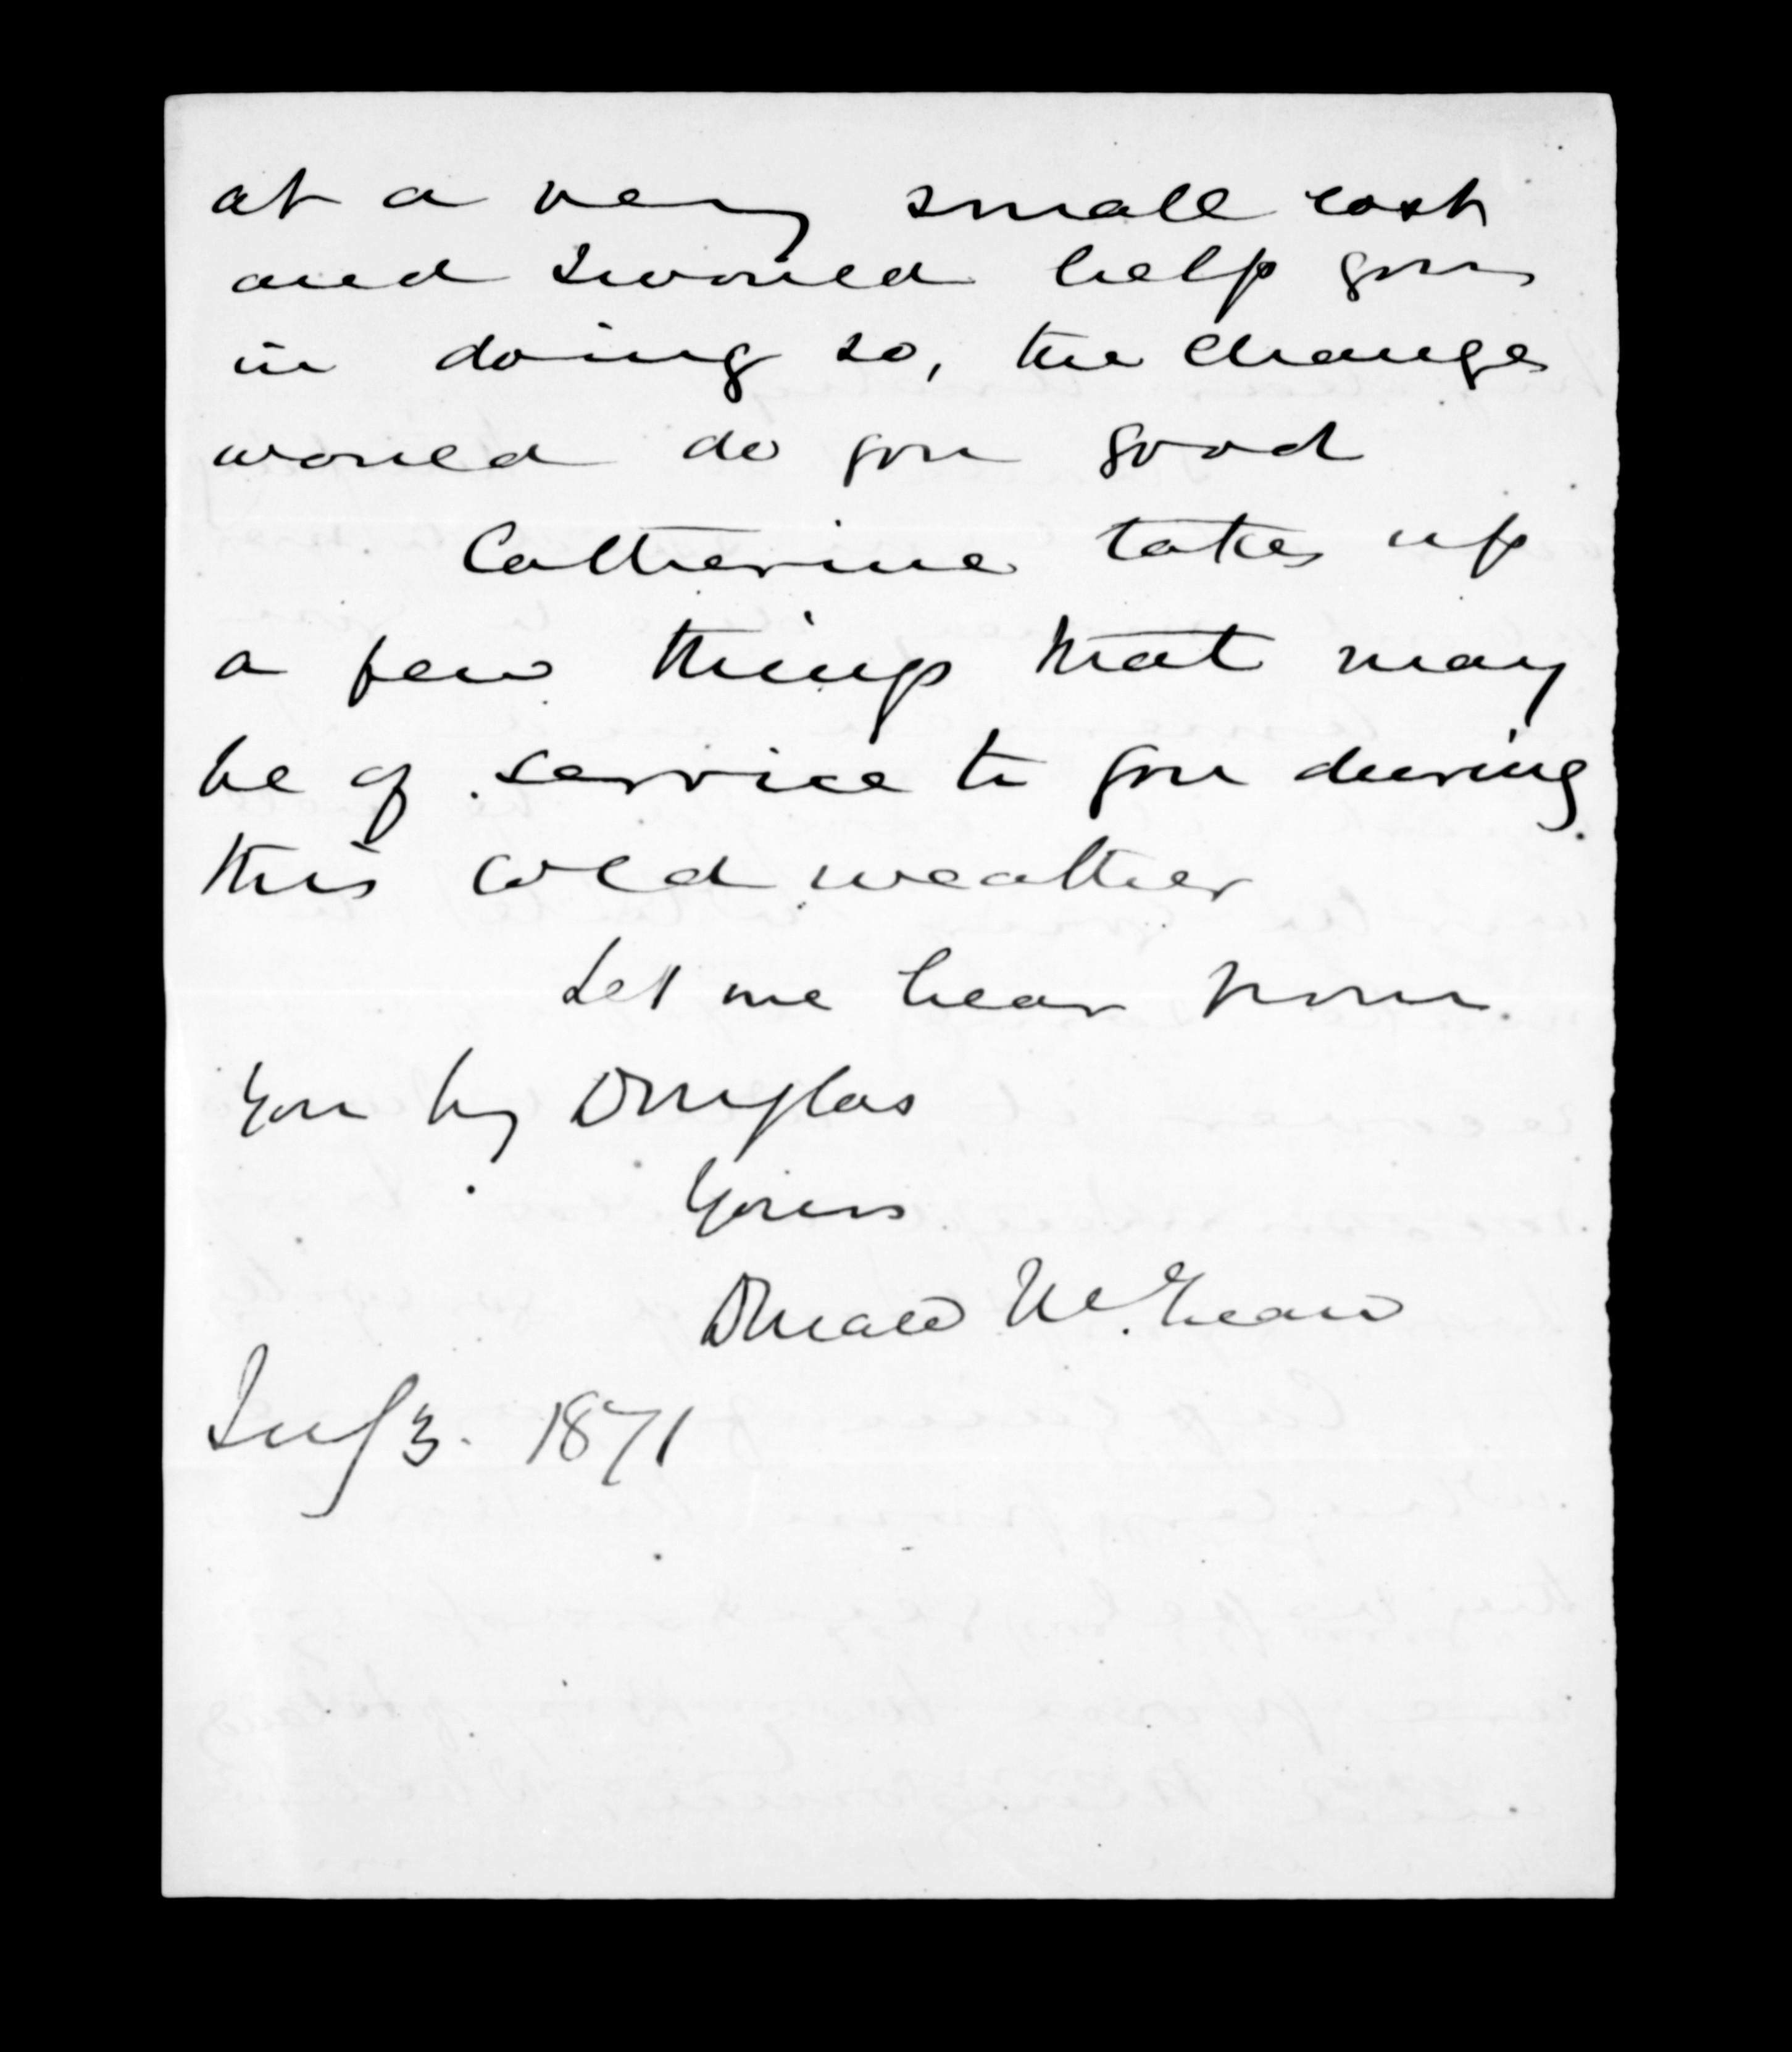 at a very small cost
and I would help you
in doing so, the change
would do you good
Catherine takes up
a few things that may
be of service to you during
this cold weather
Let me hear from
you by Douglas
Yours
Donald McLean
July 3. 1871